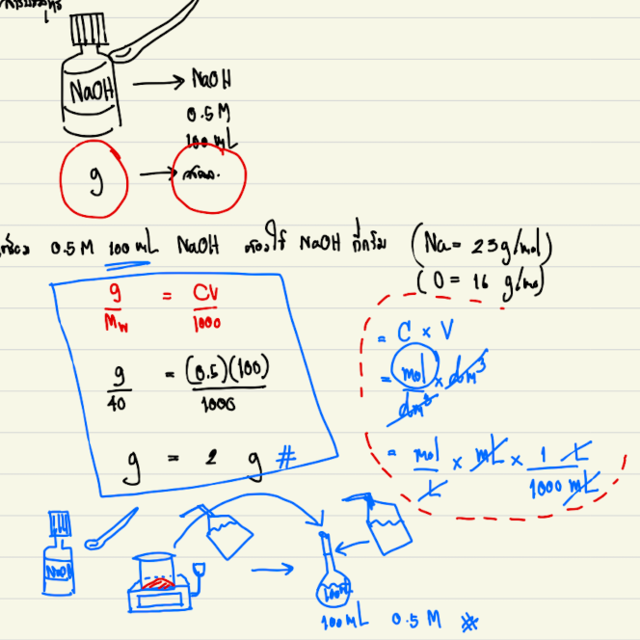 NaOH → NaOH
0.5 M
100 mL
g → สารละ.
0.5 M 100 mL NaOH ต้องใช้ NaOH กี่กรัม (Na = 23 g/mol)
(O = 16 g/mol)
g/Mw = CV/1000
= C × V
g/40 = (0.5)(100)/1000
= mol/dm³ × dm³
g = 2 g #
= mol/L × mL × 1 L/1000 mL
NaOH
100mL
100 mL 0.5 M